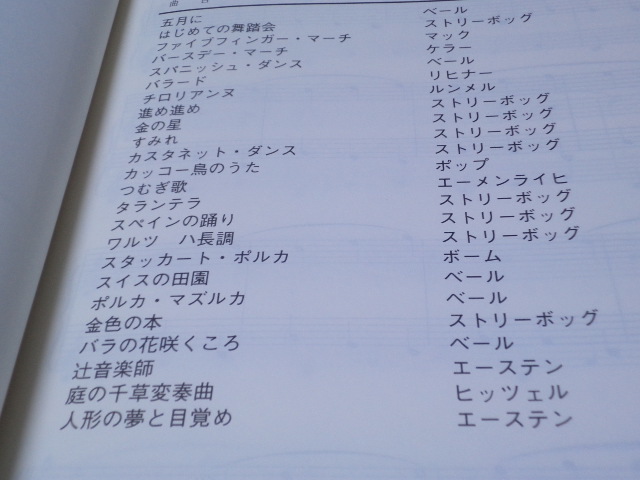 曲 名
五月に ベール
はじめての舞踏会 ストリーボッグ
ファイブフィンガー・マーチ マック
バースデー・マーチ ケラー
スパニッシュ・ダンス ベール
バラード リヒナー
チロリアンヌ ルンメル
進め進め ストリーボッグ
金の星 ストリーボッグ
すみれ ストリーボッグ
カスタネット・ダンス ストリーボッグ
カッコー鳥のうた ポップ
つむぎ歌 エーメンライヒ
タランテラ ストリーボッグ
スペインの踊り ストリーボッグ
ワルツ　ハ長調 ストリーボッグ
スタッカート・ポルカ ボーム
スイスの田園 ベール
ポルカ・マズルカ ベール
金色の本 ストリーボッグ
バラの花咲くころ ベール
辻音楽師 エーステン
庭の千草変奏曲 ヒッツェル
人形の夢と目覚め エーステン